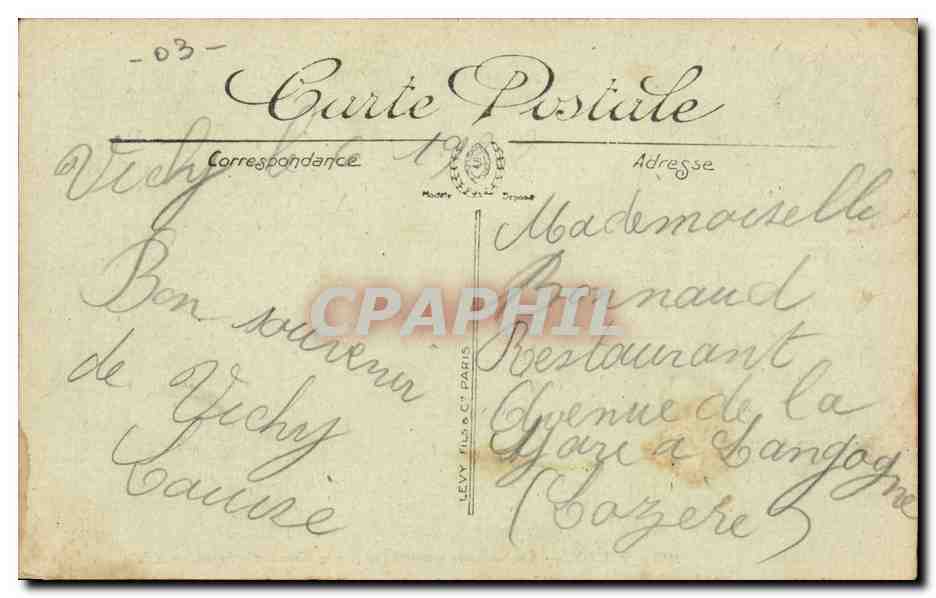 -03-
Carte Postale
Correspondance
Adresse
Modèle Déposé
Vichy le 6 19
Bon souvenir
de Vichy
Louise
LEVY FILS & Cie PARIS
Mademoiselle
Bernaud
Restaurant
Avenue de la
Gare a Langogne
(Lozère)
CPAPHIL